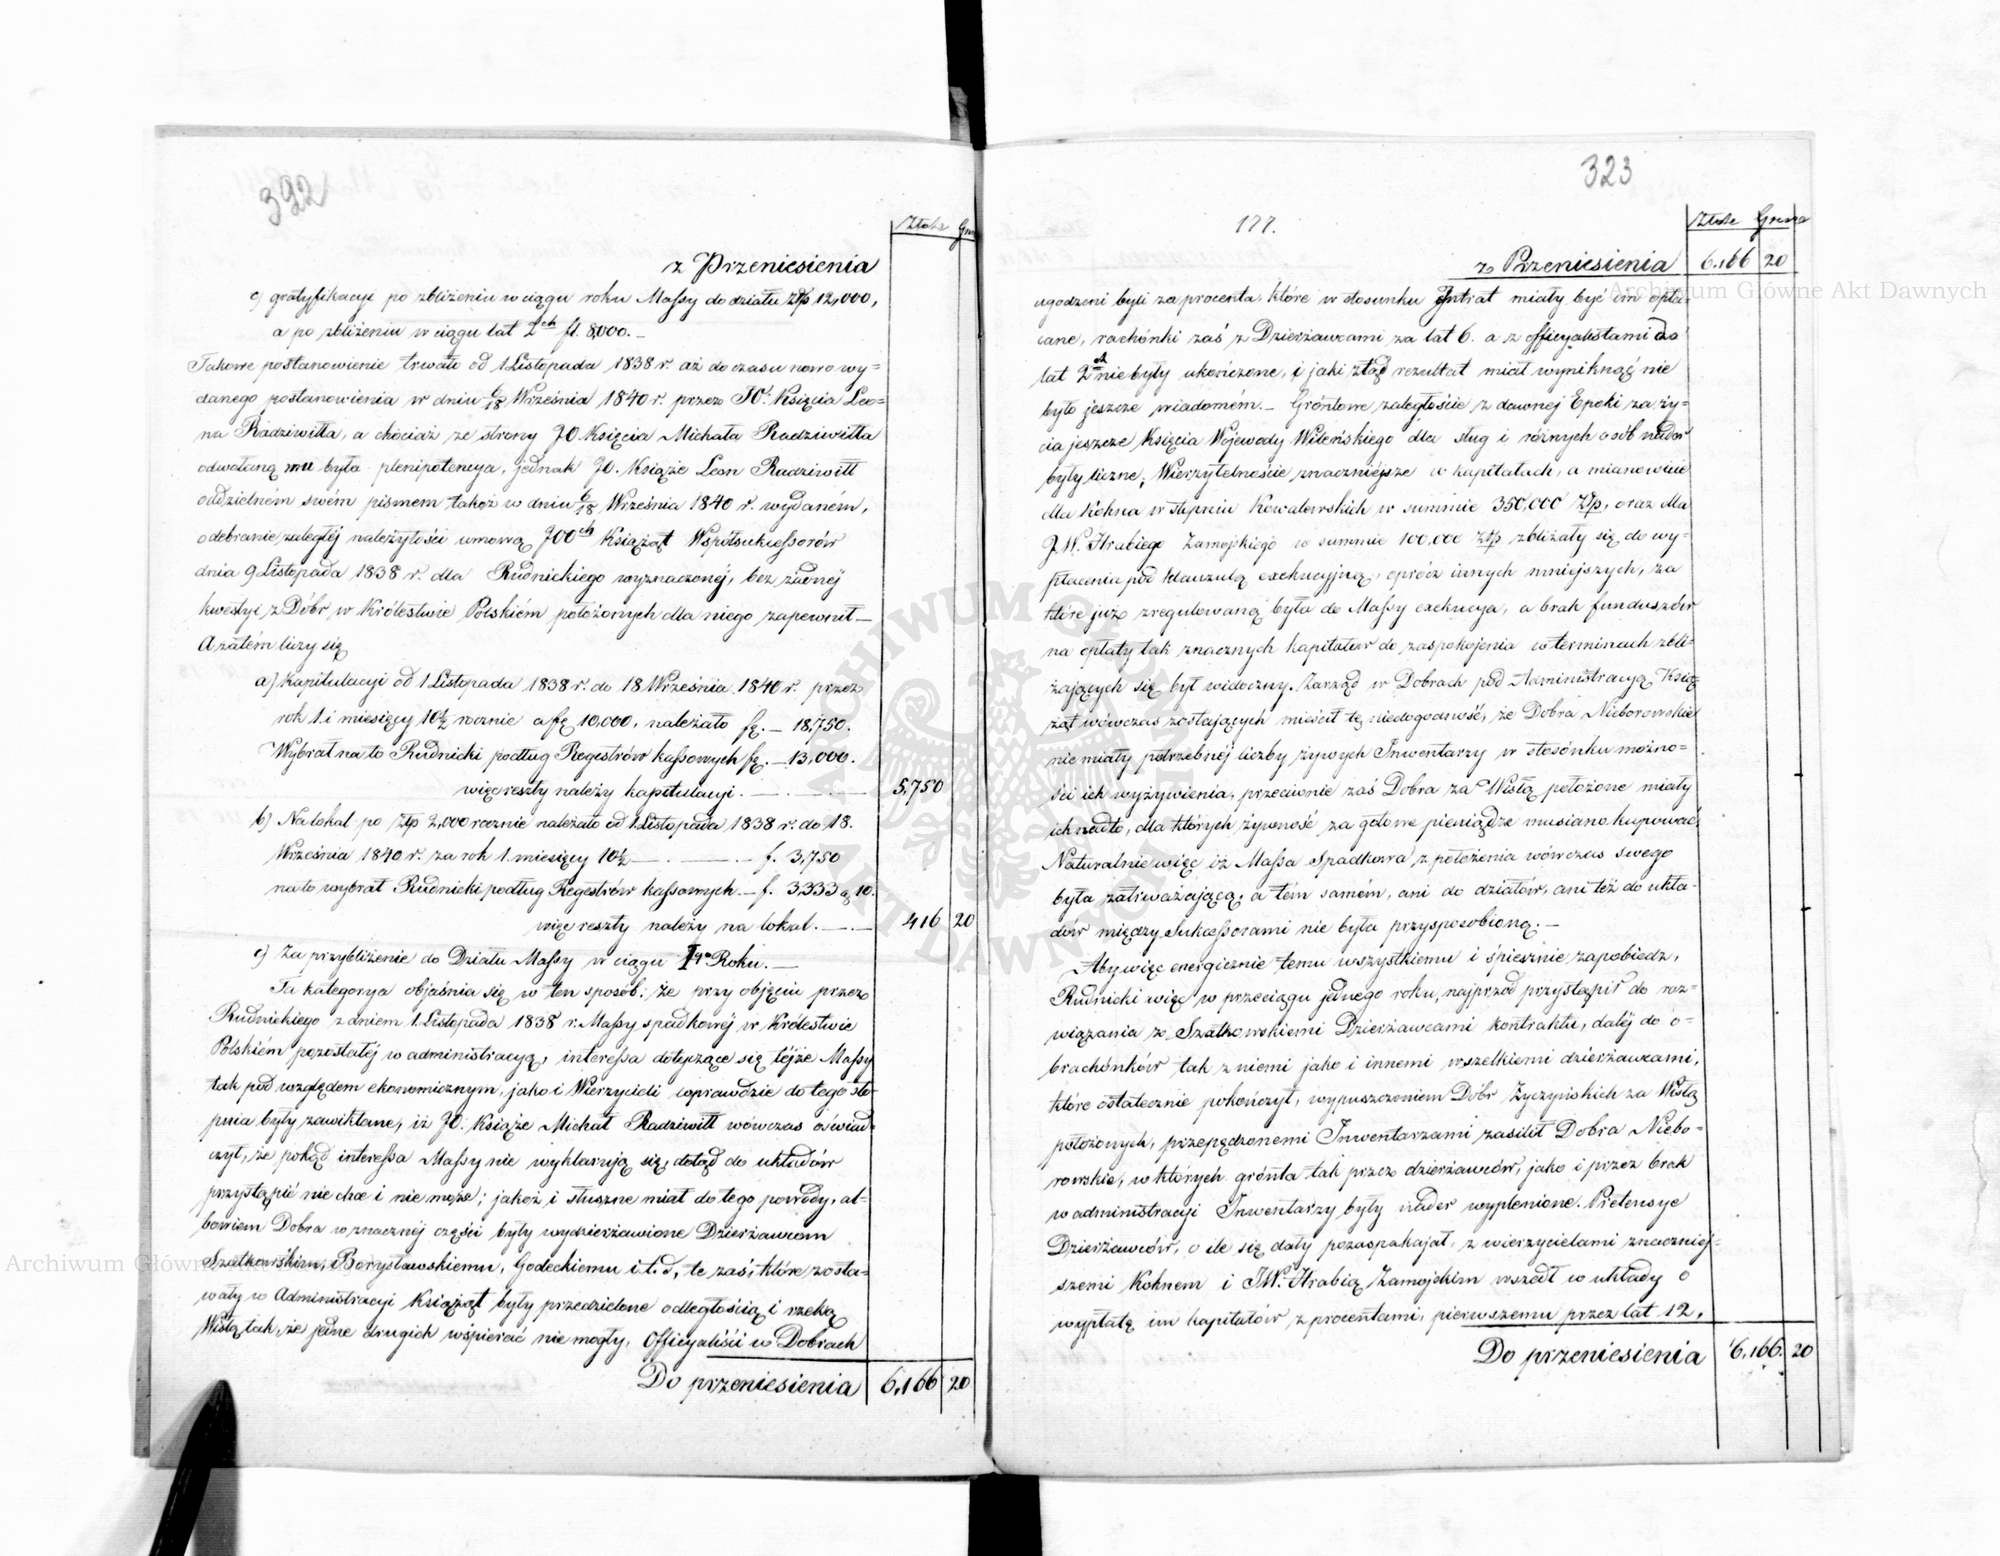 392
Złote Gro
z Przeniesienia
c) gratyfikacyi po zbliżeniu w ciągu roku Massy do działu Złp 12,000,
a po zbliżeniu w ciągu lat 2ch fl. 8,000.—
Takowe postanowienie trwało od 1 Listopada 1838 r. aż do czasu nowo wy=
danego postanowienia w dniu 6/18 Września 1840 r. przez JO. Księcia Leo=
na Radziwiłła, a chociaż ze strony JO. Księcia Michała Radziwiłła
odwołaną mu była plenipotencya, jednak JO. Książe Leon Radziwiłł
oddzielném swém pismem także w dniu 6/18 Września 1840 r. wydaném,
odebranie zaległéj należytości umową JOOch Książąt Współsukcessorów
dnia 9 Listopada 1838 r. dla Rudnickiego wyznaczonéj, bez żadnéj
kwestyi z Dóbr w Królestwie Polskiém położonych dla niego zapewnił—
A zatém liczy się
a) Kapitulacyi od 1 Listopada 1838 r. do 18 Września 1840 r. przez
rok 1. i miesięcy 10½ rocznie a fł 10,000, należało fł.— 18,750.
Wybrał na to Rudnicki podług Regestrów kassowych fł.— 13,000.
więc reszty należy kapitulacyi. 5,750
b) Na lokal po Złp 2,000 rocznie należało od 1 Listopada 1838 r. do 18.
Września 1840 r. za rok 1. miesięcy 10½ — f. 3,750
na to wybrał Rudnicki podług Regestrów kassowych.— f. 3,333 g 10.
więc reszty należy na lokal.— 416 20
c) Za przybliżenie do Działu Massy w ciągu 1go Roku.—
Ta kategorya objaśnia się w ten sposób: że przy objęciu przez
Rudnickiego z dniem 1. Listopada 1838 r. Massy spadkowéj w Królestwie
Polskiém pozostałéj w administracyą, interessa dotyczące się téjże Massy
tak pod względem ekonomicznym, jako i Wierzycieli wprawdzie do tego sto-
pnia były zawikłane, iż JO. Książe Michał Radziwiłł wówczas oświad-
czył, że pokąd interessa Massy nie wyklarują się, dotąd do układów
przystąpić nie chce i nie może; jakoż i słuszne miał do tego powody, al-
bowiem Dobra w znacznéj części były wydzierżawione Dzierżawcom
Szatkowskim, Borysławskiemu, Godeckiemu i t. d, te zaś, które zosta-
wały w Administracyi Książąt były przedzielone odległością i rzeką
Wisłą tak, że jedne drugich wspierać nie mogły, Officyaliści w Dobrach
Do przeniesienia 6,166 20
323
177.
Złote Grosze
z Przeniesienia 6,166 20
ugodzeni byli za procenta, które w stosunku Intrat miały być im opła-
cane, rachónki zaś z Dzierżawcami za lat 6. a z officyalistami za
lat 2 nie były ukończone, i jaki ztąd rezultat miał wyniknąć nie
było jeszcze wiadomém.— Gróntowe zaległoście z dawnej Epoki za ży=
cia jeszcze Księcia Wojewody Wileńskiego dla sług i różnych osób nader
były liczne, Wierzytelnoście znaczniejsze w kapitałach, a mianowicie
dla Kohna w stopniu Kowalewskich w summie 350,000 Złp, oraz dla
J.W. Hrabiego Zamojskiego w summie 100,000 złp zbliżały się do wy-
płacenia pod klauzulą exekucyjną, oprócz innych mniejszych, za
które już zregulowaną była do Massy exekucya, a brak funduszów
na opłaty tak znacznych kapitałów do zaspokojenia w terminach zbli-
żających się był widoczny. Zarząd w Dobrach pod Administracyą Ksią
żąt wówczas zostających mieścił tę niedogodność, że Dobra Nieborowskie
nie miały potrzebnéj liczby żywych Inwentarzy w stosónku możno=
ści ich wyżywienia, przeciwnie zaś Dobra za Wisłą położone miały
ich nadto, dla których żywność za gotowe pieniądze musiano kupować,
Naturalnie więc iż Massa Spadkowa z położenia wówczas swego
była zatrważającą, a tém samém, ani do działów, ani też do ukła-
dów między Sukcessorami nie była przysposobioną.—
Aby więc energicznie temu wszystkiemu i śpiesznie zapobiedz,
Rudnicki więc w przeciągu jednego roku, najprzód przystąpił do roz=
wiązania z Szatkowskiemi Dzierżawcami kontraktu, daléj do o-
brachónków tak z niemi jako i innemi wszelkiemi dzierżawcami,
które ostatecznie pokończył, wypuszczeniem Dóbr Życzyńskich za Wisłą
położonych, przepędzonemi Inwentarzami zasilił Dobra Niebo-
rowskie, w których grónta tak przez dzierżawców, jako i przez brak
w administracyi Inwentarzy były nader wyplenione. Pretensye
Dzierżawców, o ile się dały pozaspakajał, z wierzycielami znaczniej-
szemi Kohnem i JW. Hrabią Zamojskim wszedł w układy o
wypłatę im kapitałów z procentami, pierwszemu przez lat 12,
Do przeniesienia 6,166. 20
Archiwum Główne Akt Dawnych